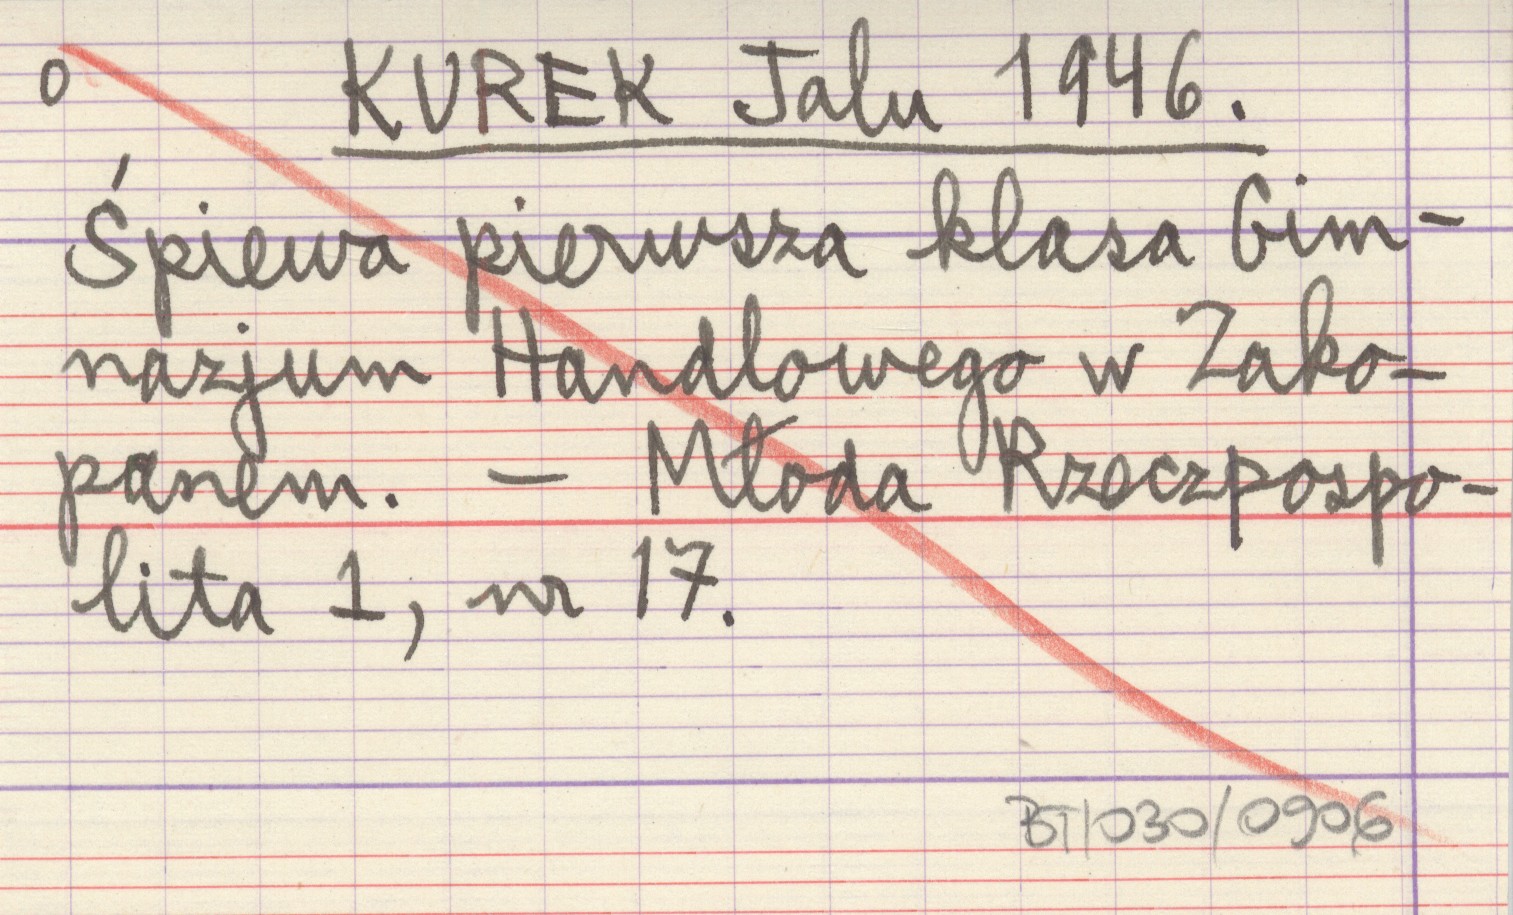 O
KUREK Jalu 1946.
Śpiewa pierwsza klasa Gim-
nazjum Handlowego w Zako-
panem. – Młoda Rzeczpospo-
lita 1, nr 17.
BT/030/0906